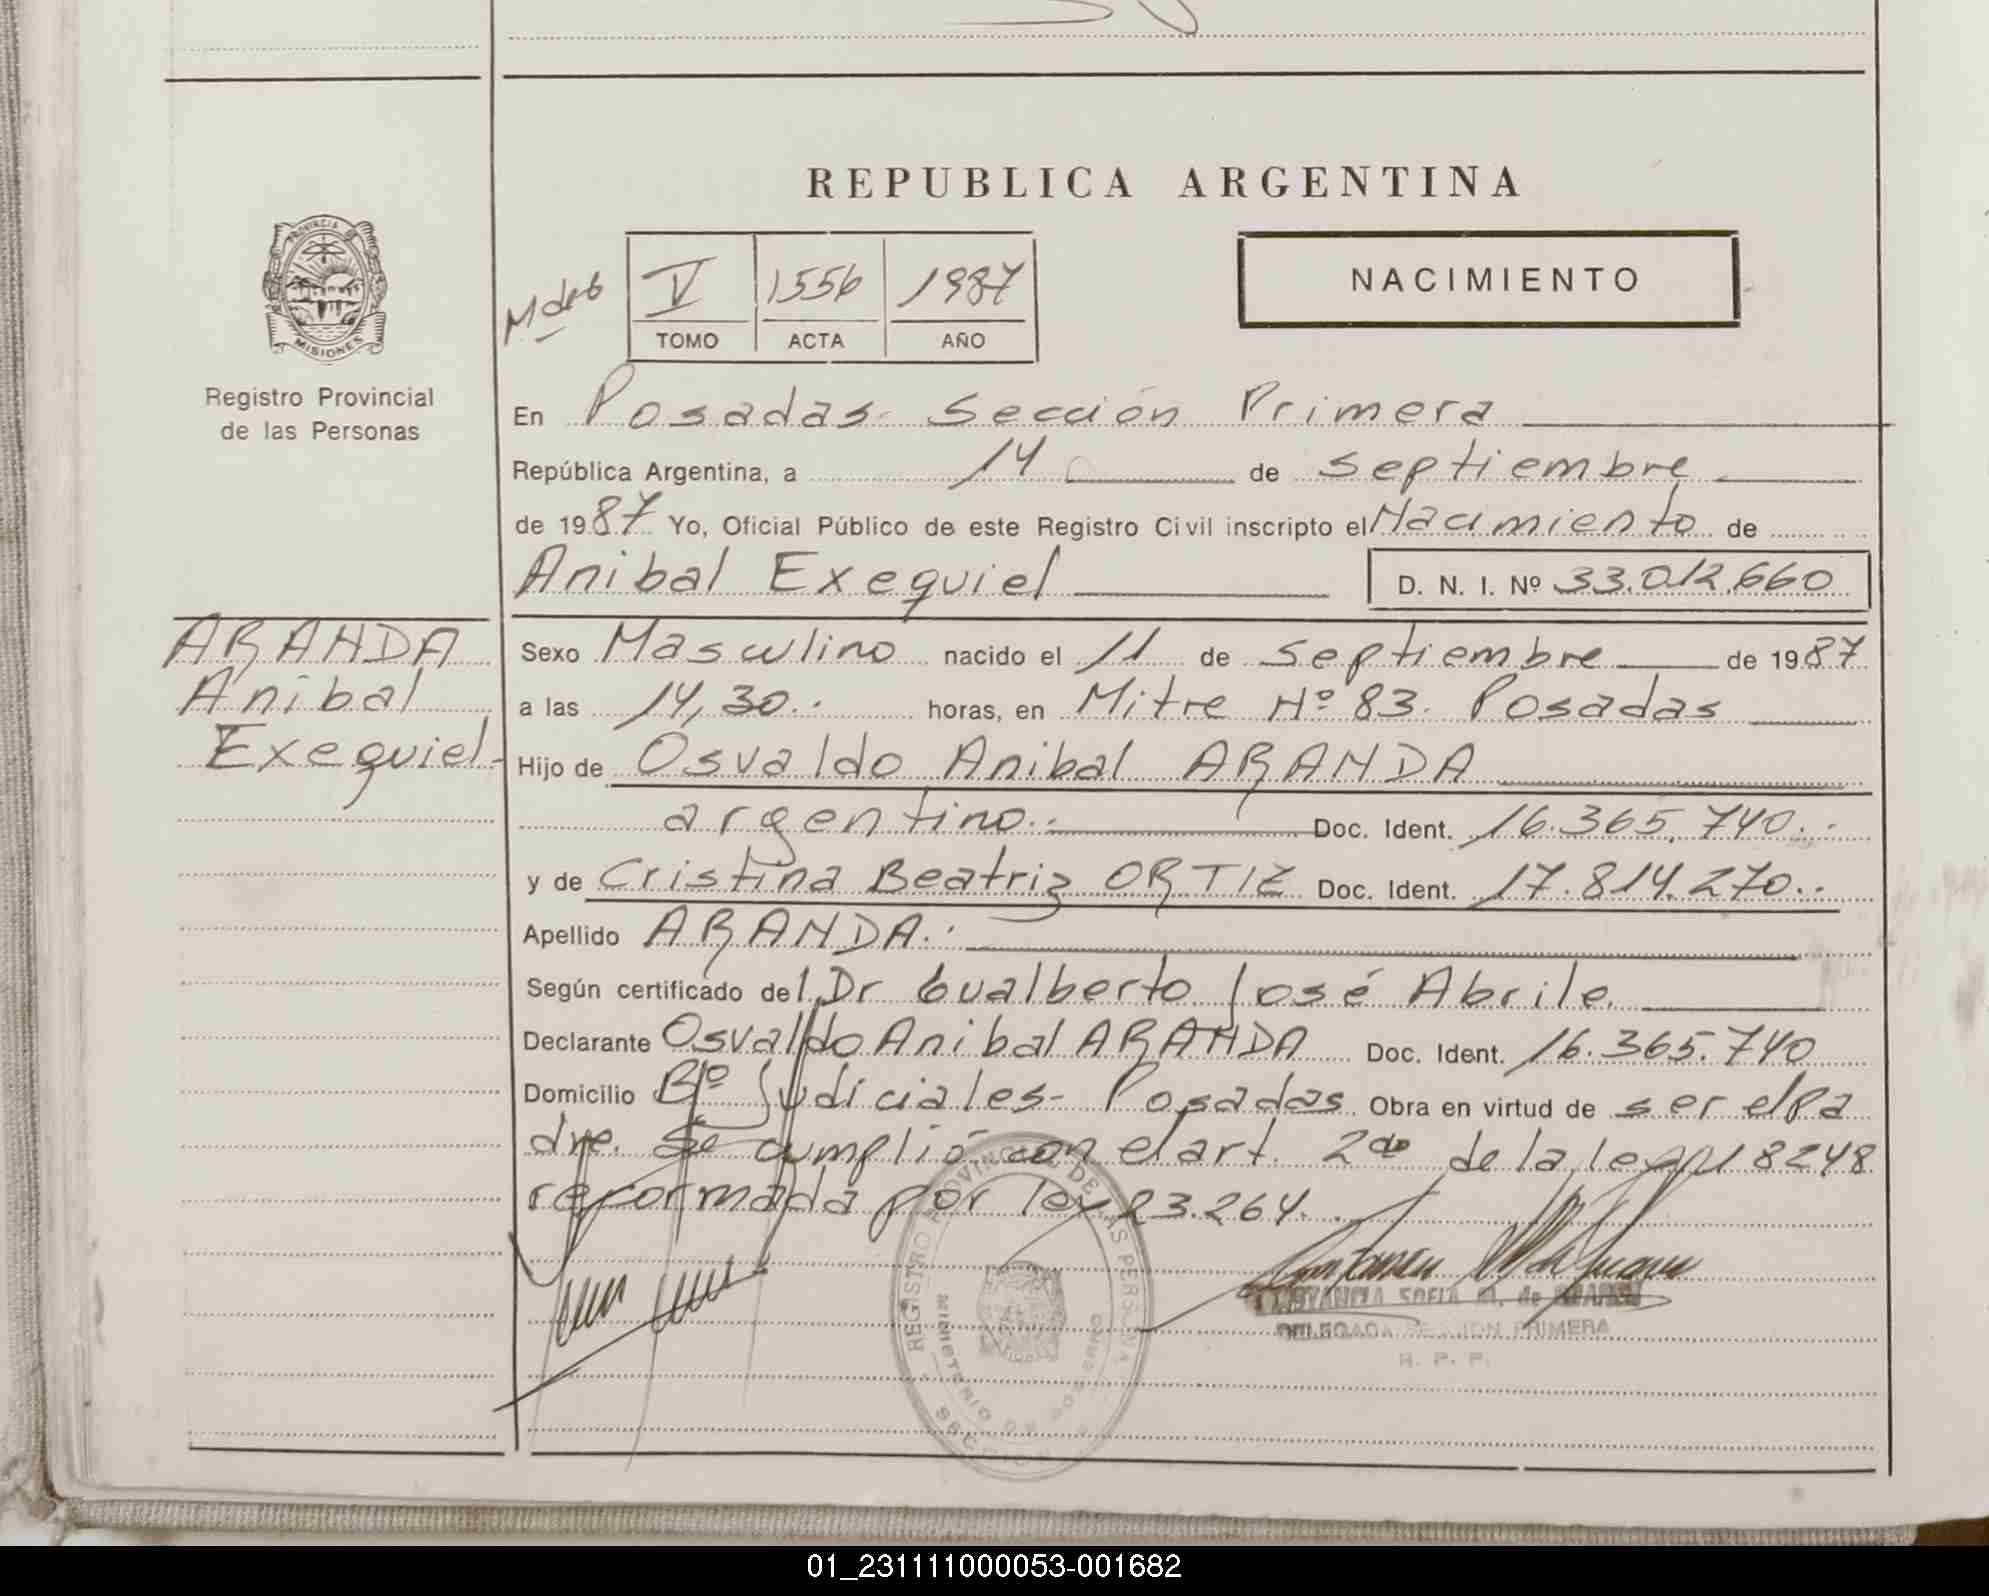 REPUBLICA ARGENTINA
PROVINCIA DE
MISIONES
Registro Provincial
de las Personas
V 1556 1987
TOMO ACTA AÑO
NACIMIENTO
En Posadas- Sección Primera
República Argentina, a 14 de septiembre
de 1987 Yo, Oficial Público de este Registro Civil inscripto el Nacimiento de
Anibal Exequiel D. N. I. Nº 33.012.660
ARANDA
Anibal
Exequiel-
Sexo Masculino nacido el 11 de septiembre de 1987
a las 14,30.. horas, en Mitre Nº 83. Posadas
Hijo de Osvaldo Anibal ARANDA
argentino.. Doc. Ident. 16.365.740..
y de Cristina Beatriz ORTIZ Doc. Ident. 17.814.270..
Apellido ARANDA..
Según certificado del Dr Gualberto José Abrile.
Declarante Osvaldo Anibal ARANDA Doc. Ident. 16.365.740
Domicilio Bº Judiciales- Posadas Obra en virtud de ser el pa
dre. Se cumplió con el art. 2do de la ley 18248
reformada por ley 23.264..
REGISTRO PROVINCIAL DE LAS PERSONAS
MINISTERIO DE GOBIERNO
SECCION
SOFIA M. de
DELEGADA SECCION PRIMERA
R. P. P.
01_231111000053-001682